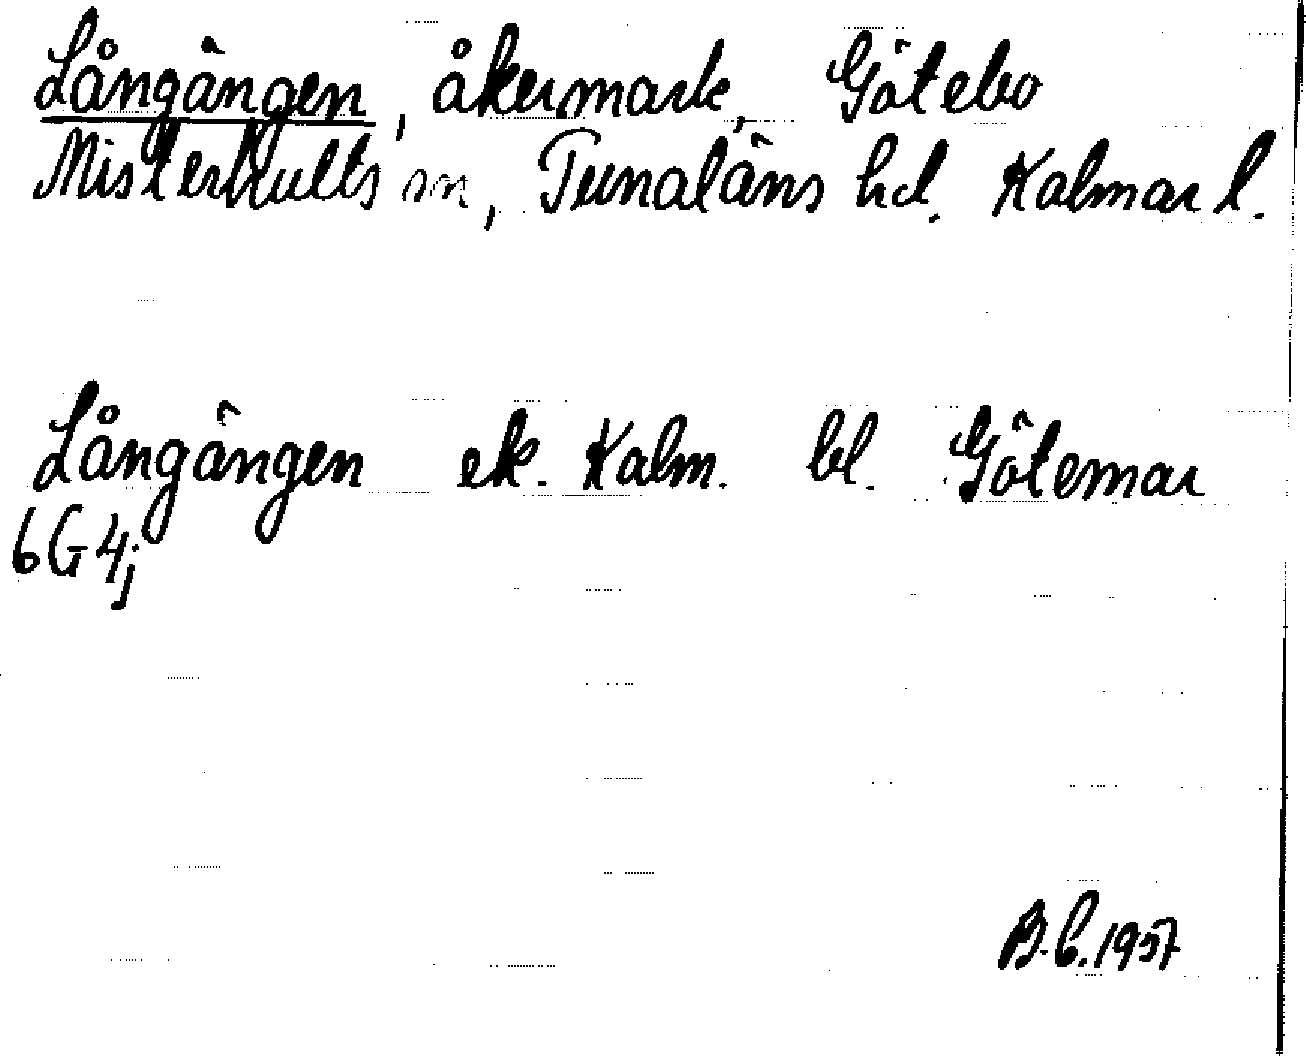 Långängen, åkermark, Götebo
Misterhults sn, Tunaläns hd. Kalmar l.
Långängen ek. Kalm. bl. Götemar
6G4j
B.L. 1957